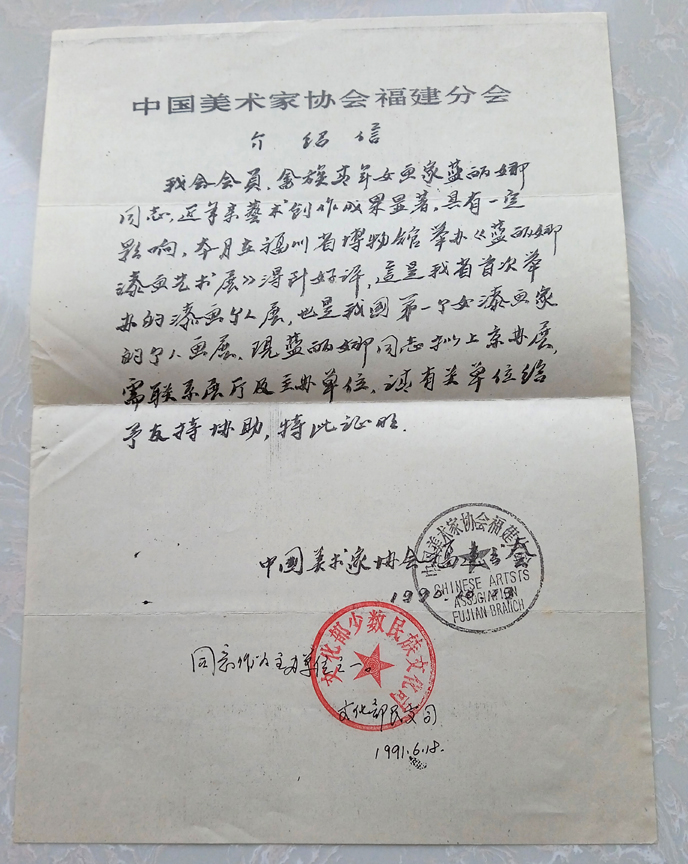 中国美术家协会福建分会
介绍信
我会会员,畲族青年女画家蓝丽娜
同志,近年来藝术创作成果显著,具有一定
影响,本月在福州省博物館举办《蓝丽娜
漆画艺术展》得到好评,這是我省首次举
办的漆画个人展,也是我國第一个女漆画家
的个人画展。现蓝丽娜同志拟上京办展,
需联系展厅及主办单位,请有关单位给
予支持协助,特此证明.
中國美术家协会福建分会
中国美术家协会福建分会
CHINESE ARTSTS
ASSOCIATION
FUJIAN BRANCH
1990
文化部少数民族文化司
同意作为主办单位之一。
文化部民文司
1991.6.18.